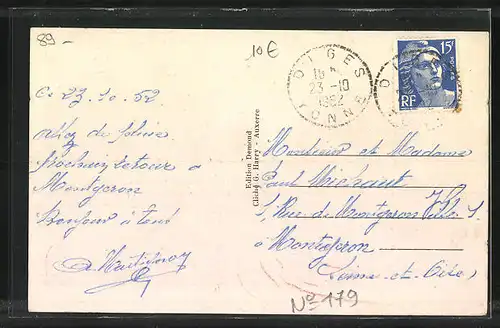 89-
10€
DIGES
23-10
1952
YONNE
15F
POSTES
RF
Ce 23.10.52
de
Prochain retour à
Montgeron
Bonjour à tous
Edition Demond
Cliché G. Harry - Auxerre
Monsieur et Madame
Paul Michaut
Rue de Montgeron
à Montgeron
Seine-et-Oise
No 179